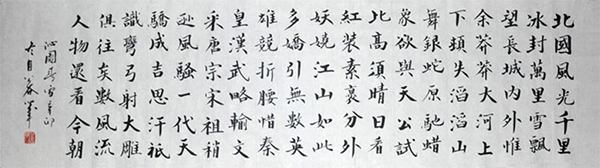 北國風光千里
冰封萬里雪飄
望長城内外惟
余莽莽大河上
下頓失滔滔山
舞銀蛇原馳蠟
象欲與天公試
比高須晴日看
紅裝素裹分外
妖嬈江山如此
多嬌引無數英
雄競折腰惜秦
皇漢武略輸文
采唐宗宋祖稍
遜風騷一代天
驕成吉思汗祇
識彎弓射大雕
俱往矣數風流
人物還看今朝
沁園春雪辛卯
冬月